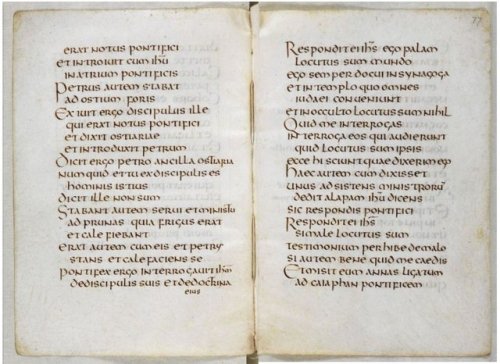 erat notus pontifici
et introiut cum ihu
in atrium pontificis
Petrus autem stabat
ad ostium foris
Exiuit ergo discipulus ille
qui erat notus pontifici
et dixit ostiariae
et introduxit petrum
Dicit ergo petro ancilla ostiaria
numquid et tu ex discipulis es
hominis istius
dicit ille non sum
Stabant autem serui et ministri
ad prunas quia frigus erat
et calefiebant
erat autem cum eis et petrus
stans et calefaciens se
Pontifex ergo interrogauit ihm
de discipulis suis et de doctrina
eius
77
Respondit ei ihs ego palam
locutus sum mundo
ego semper docui in synagoga
et in templo quo omnes
iudaei conueniunt
et in occulto locutus sum nihil
Quid me interrogas
interroga eos qui audierunt
quid locutus sum ipsis
ecce hi sciunt quae dixerim ego
Haec autem cum dixisset
unus adsistens ministrorum
dedit alapam ihu dicens
sic respondis pontifici
Respondit ei ihs
si male locutus sum
testimonium perhibe de malo
si autem bene quid me caedis
Et misit eum annas ligatum
ad caiphan pontificem